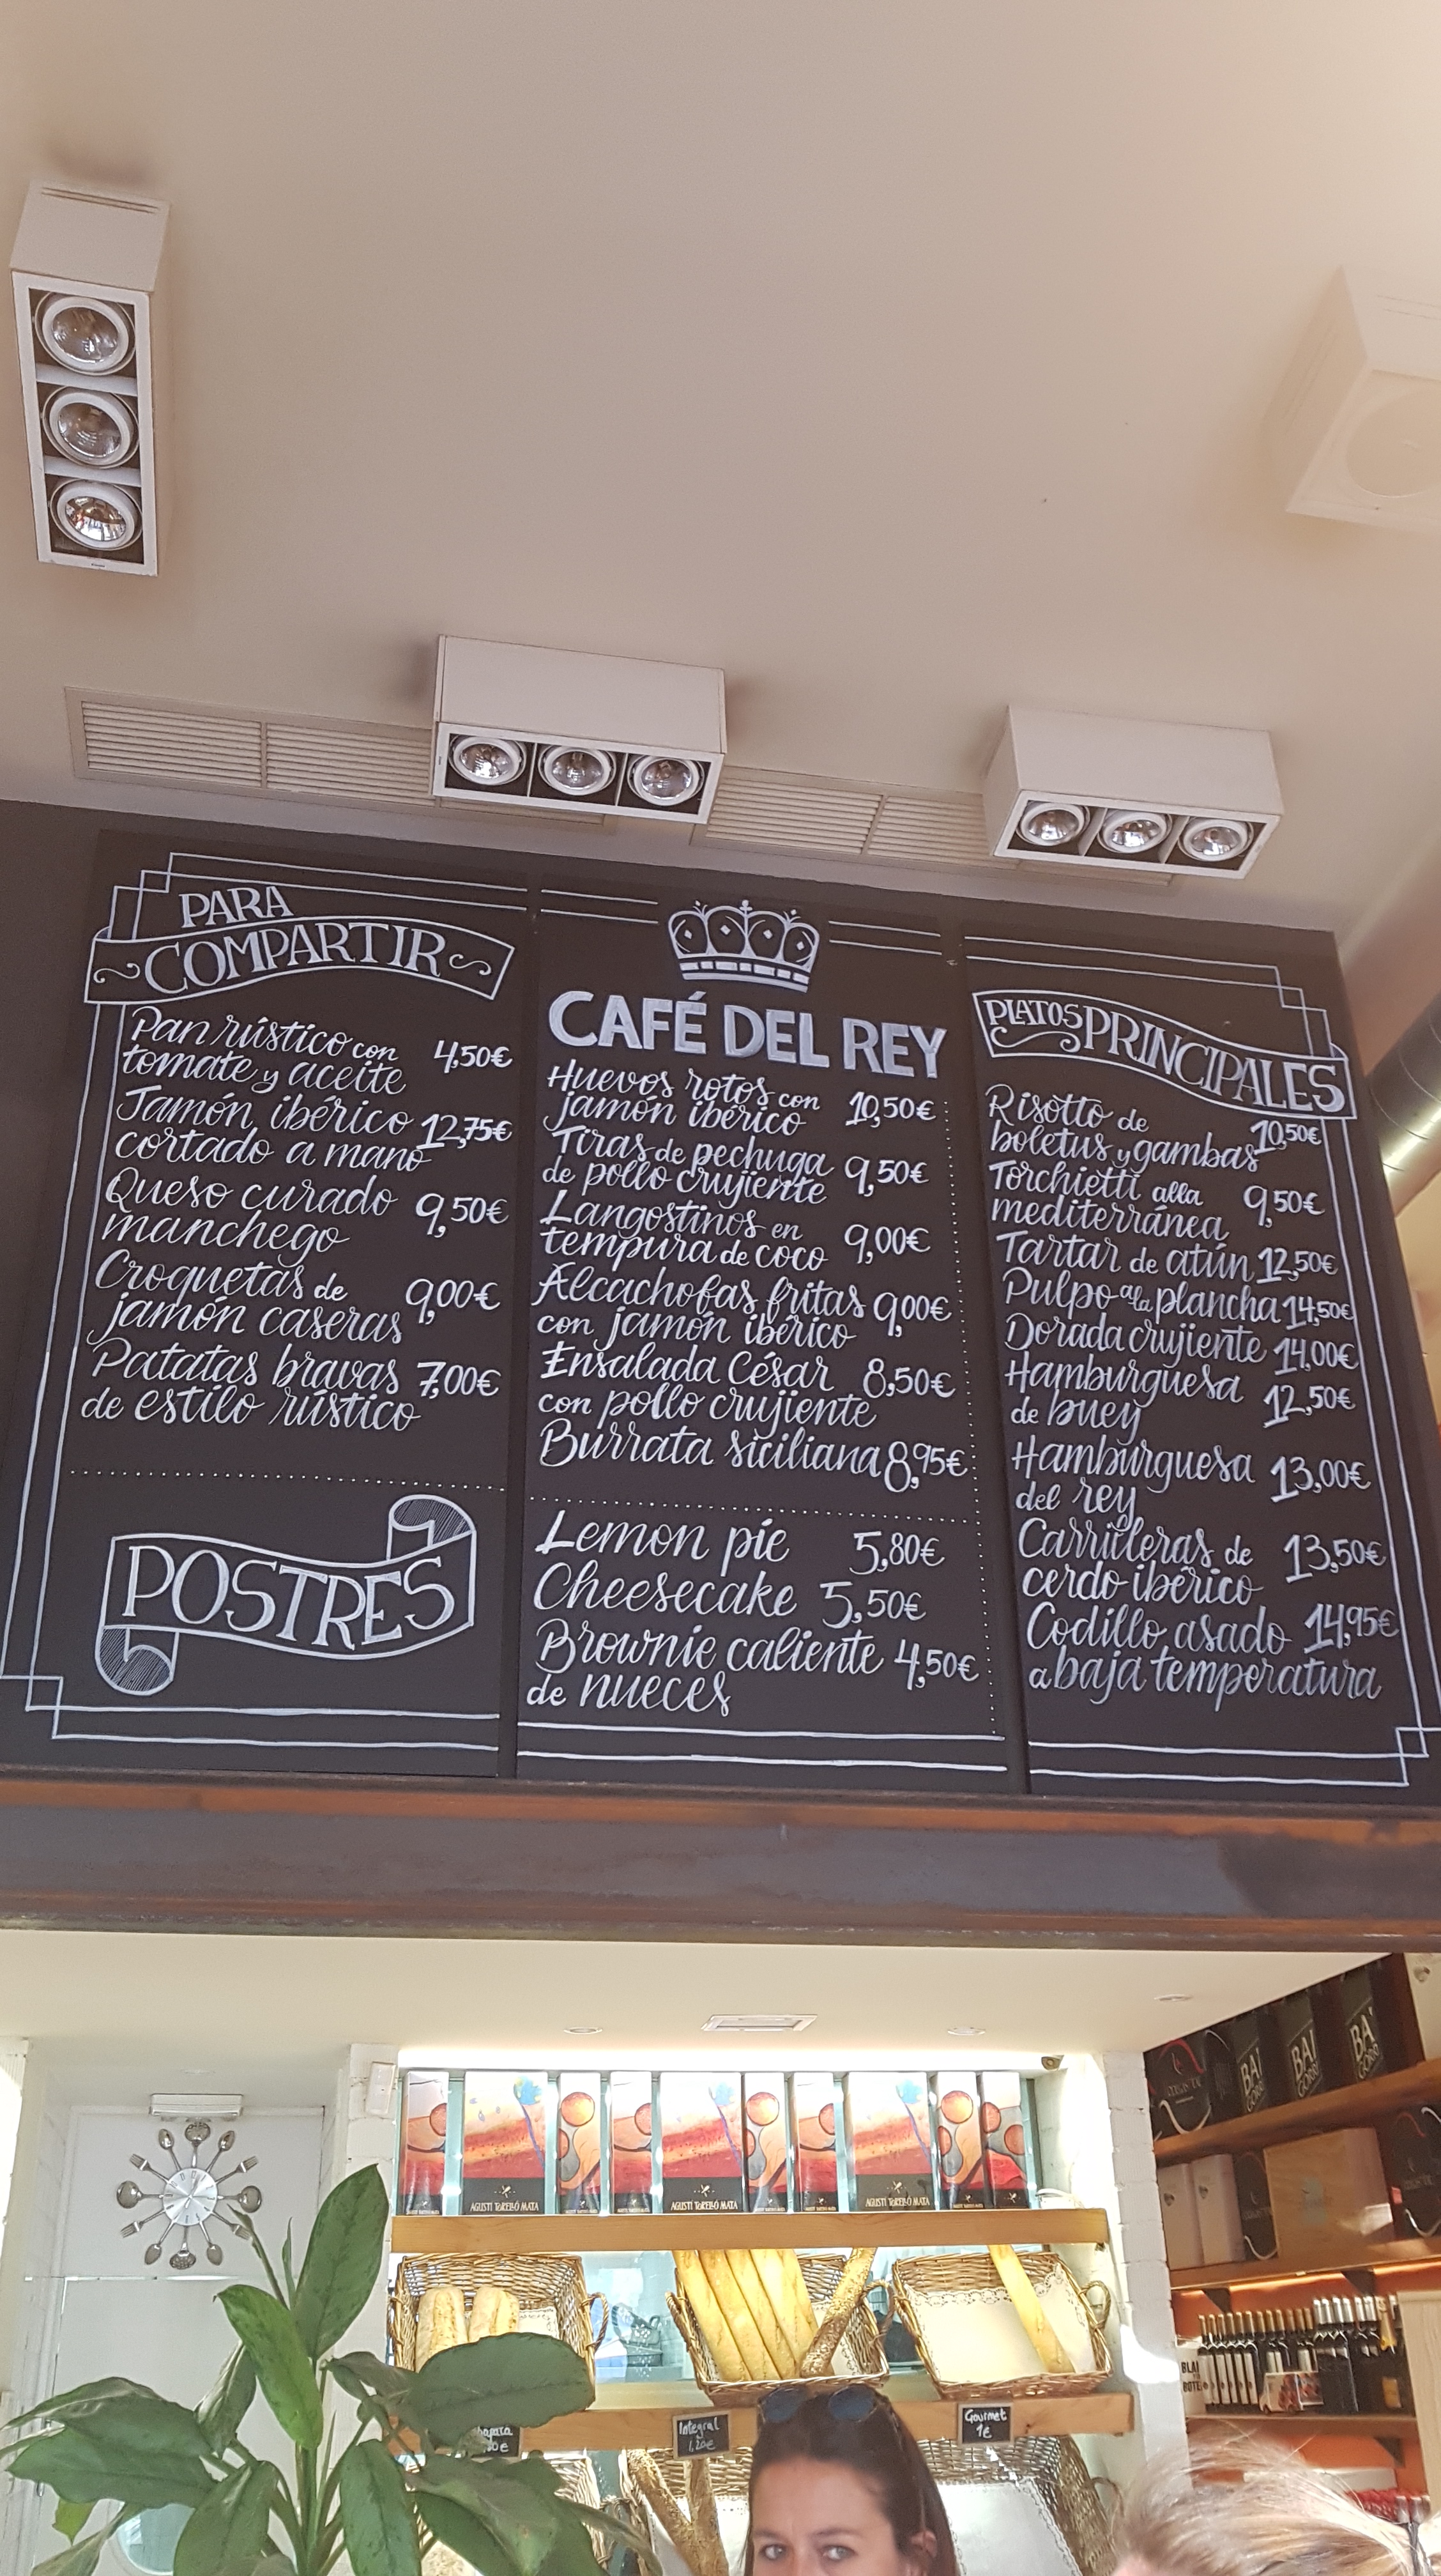 PARA
COMPARTIR
Pan rústico con
tomate y aceite 4,50€
Jamón ibérico
cortado a mano 12,75€
Queso curado
manchego 9,50€
Croquetas de
jamón caseras 9,00€
Patatas bravas 7,00€
de estilo rústico
POSTRES
CAFÉ DEL REY
Huevos rotos con
jamón ibérico 10,50€
Tiras de pechuga
de pollo crujiente 9,50€
Langostinos en
tempura de coco 9,00€
Alcachofas fritas 9,00€
con jamón ibérico
Ensalada César 8,50€
con pollo crujiente
Burrata siciliana 8,95€
Lemon pie 5,80€
Cheesecake 5,50€
Brownie caliente 4,50€
de nueces
PLATOS PRINCIPALES
Risotto de
boletus y gambas 10,50€
Torchietti alla
mediterránea 9,50€
Tartar de atún 12,50€
Pulpo a la plancha 14,50€
Dorada crujiente 14,00€
Hamburguesa
de buey 12,50€
Hamburguesa
del rey 13,00€
Carrilleras de
cerdo ibérico 13,50€
Codillo asado 14,95€
a baja temperatura
AGUSTÍ TORELLÓ MATA
AGUSTÍ TORELLÓ MATA
AGUSTÍ TORELLÓ MATA
BAI
GORRI
BAI
GORRI
BAI
GORRI
Integral
1,20€
Gourmet
1€